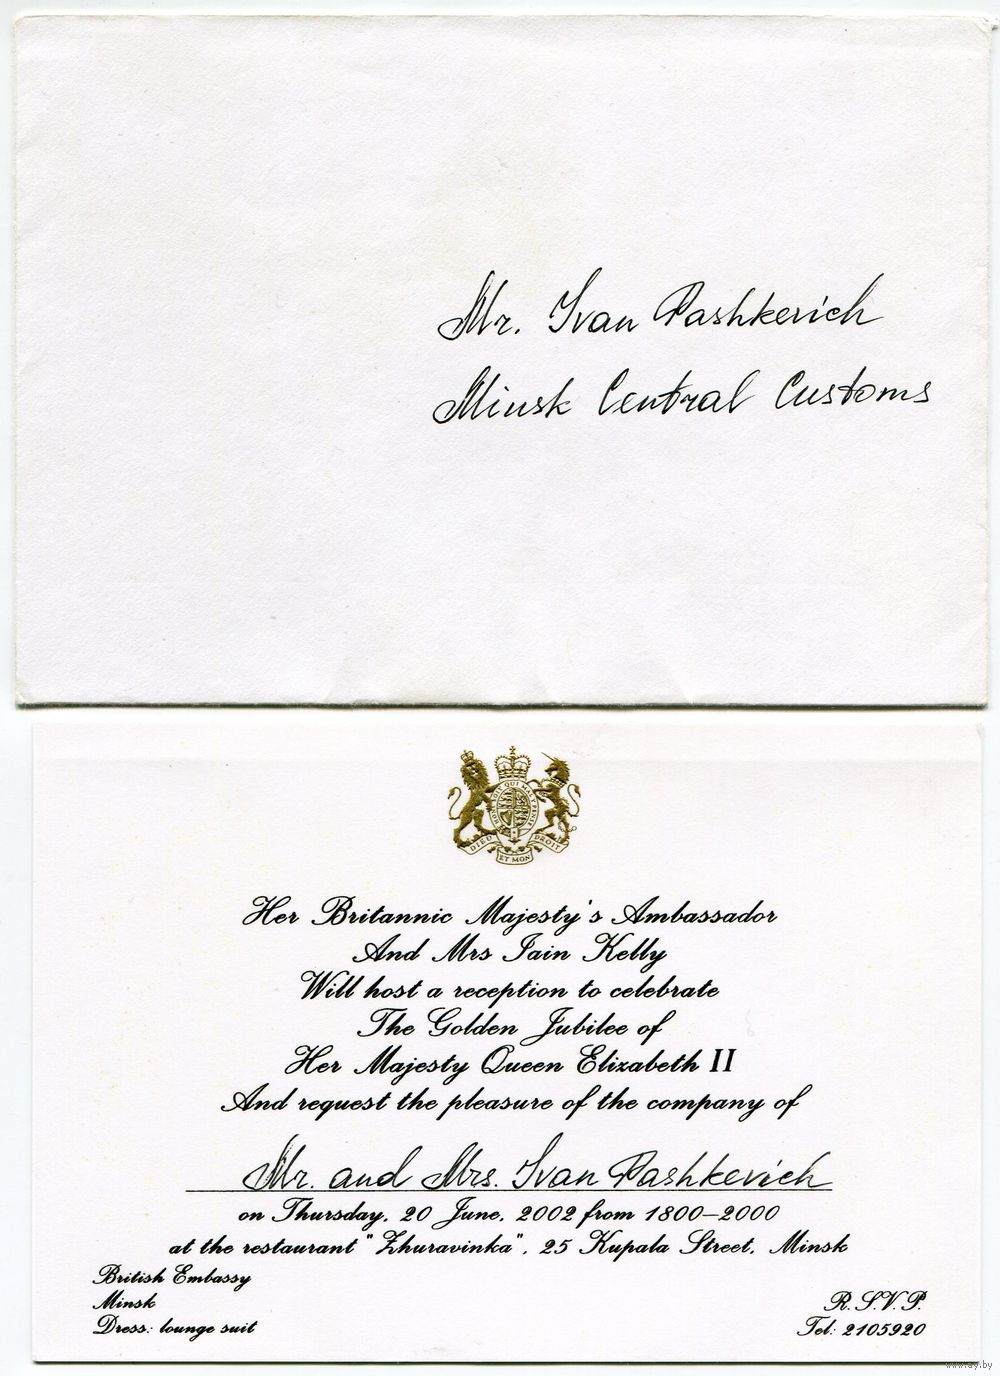 Mr. Ivan Pashkevich
Minsk Central Customs
HONI SOIT QUI MAL Y PENSE
DIEU ET MON DROIT
Her Britannic Majesty's Ambassador
And Mrs Iain Kelly
Will host a reception to celebrate
The Golden Jubilee of
Her Majesty Queen Elizabeth II
And request the pleasure of the company of
Mr. and Mrs. Ivan Pashkevich
on Thursday, 20 June, 2002 from 1800-2000
at the restaurant "Zhuravinka", 25 Kupala Street, Minsk
British Embassy
Minsk
Dress: lounge suit
R.S.V.P.
Tel: 2105920
www.ay.by